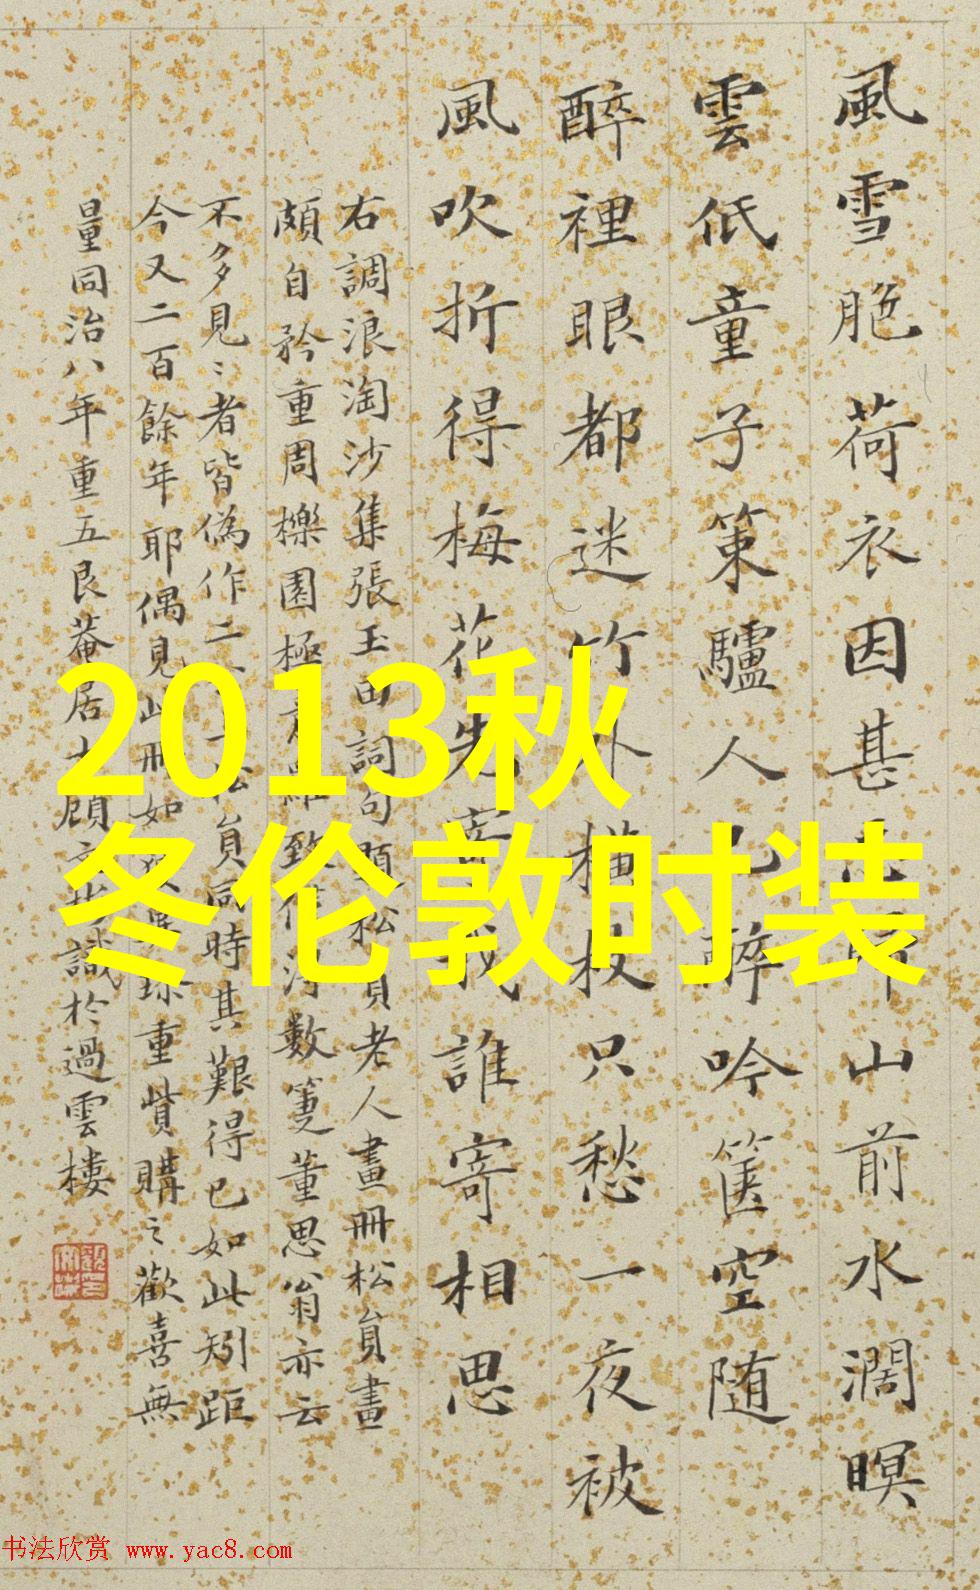 風雪脃荷衣因甚 山前水濶暝
雲低童子策驢人已醉吟箧空随
醉裡眼都迷竹外 权只愁一夜被
風吹折得梅花先寄 誰寄相思
右調浪淘沙集張玉田詞句題松員老人畫冊松負畫
頗自矜重周櫟園極 羅致 數箑董思翁亦云
不多見〻者皆偽作二 員同時其艱得已如此矧距
今又二百餘年耶偶見此冊如 重貲購之歡喜無
量同治八年重五艮菴居士顧 識於過雲樓
2013秋
冬伦敦时装
书法欣赏 www.yac8.com